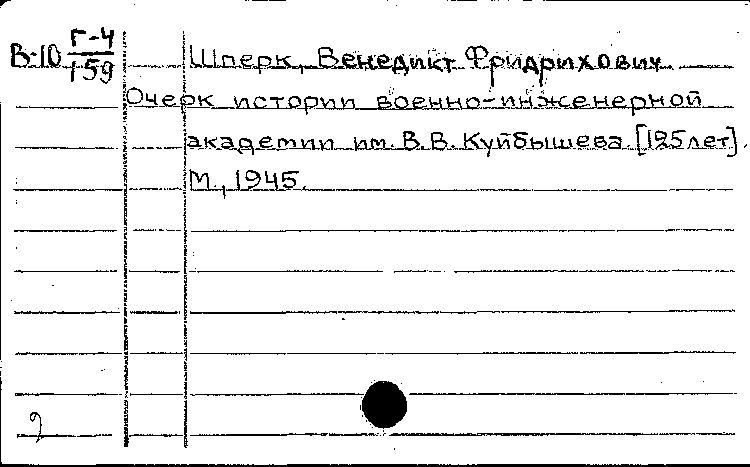 В-10 Г-4/159
Шперк, Венедикт Фридрихович
Очерк истории военно-инженерной
академии им. В.В. Куйбышева. [125 лет].
М., 1945.